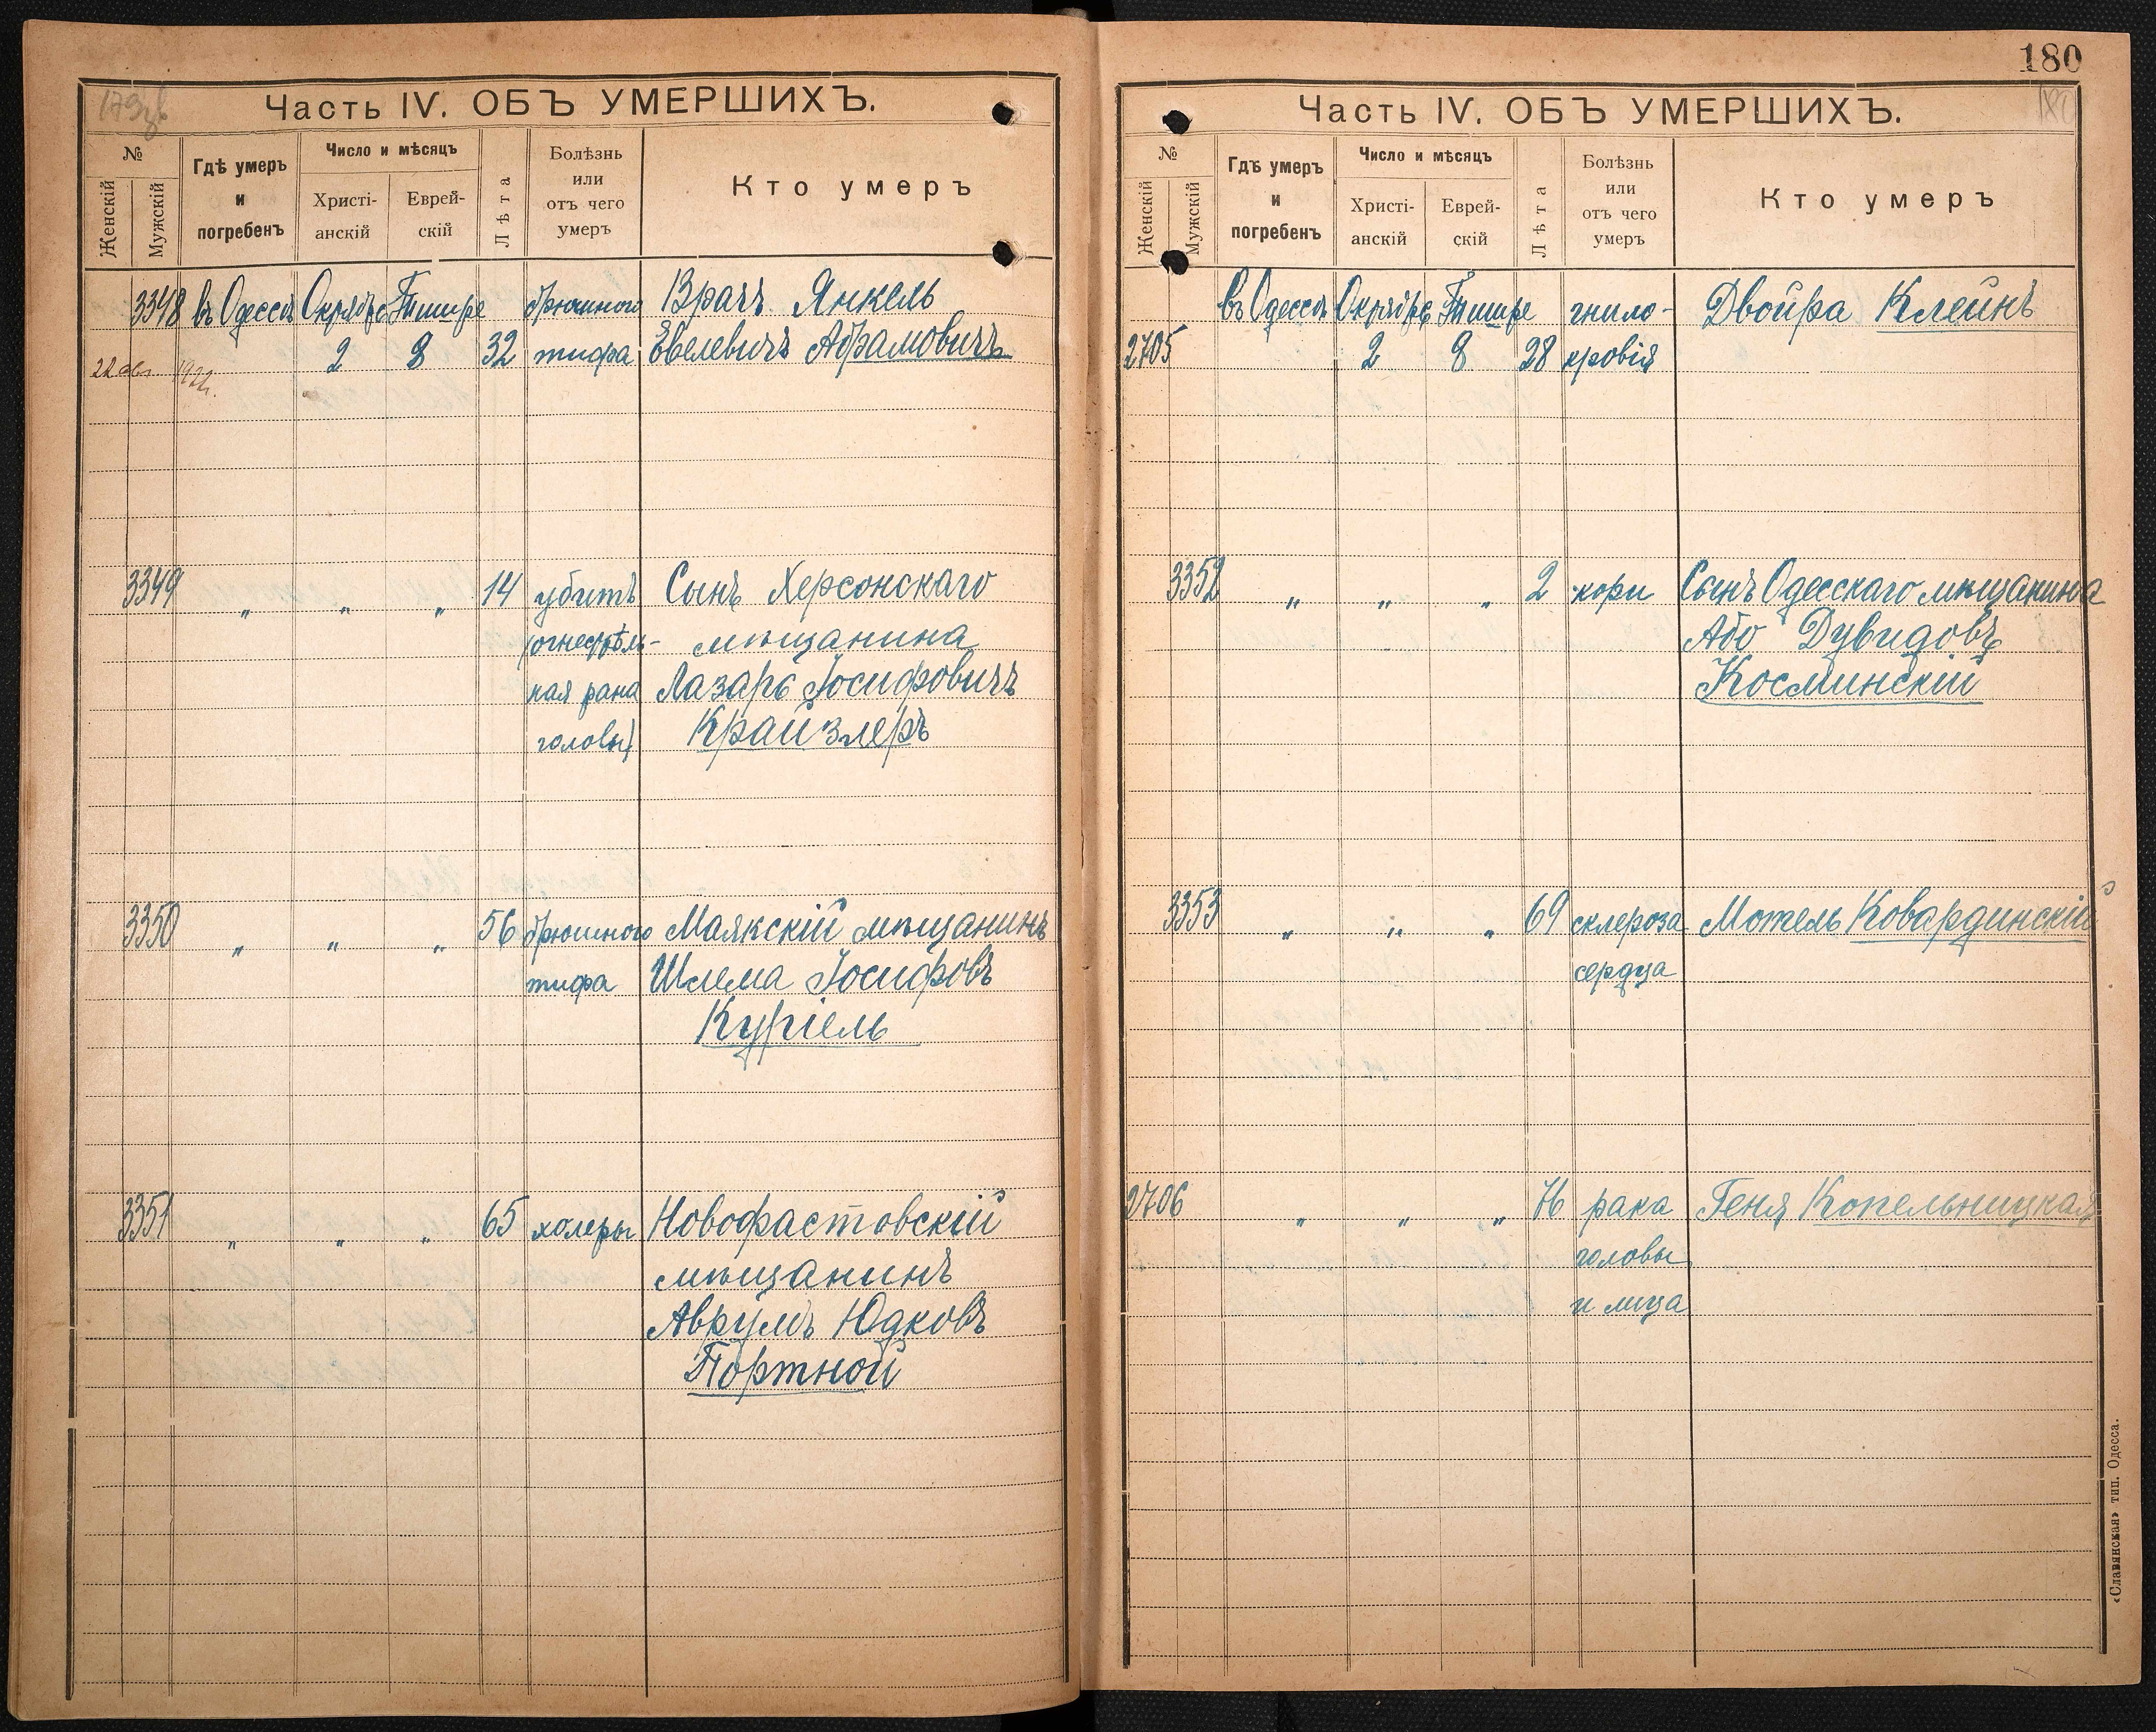 179зв
Часть IV. ОБЪ УМЕРШИХЪ.
№
Женскій
Мужскій
Гдѣ умеръ
и
погребенъ
Число и мѣсяцъ
Христі-
анскій
Еврей-
скій
Лѣта
Болѣзнь
или
отъ чего
умеръ
Кто умеръ
3348 въ Одессѣ Октябрь Тишре брюшного Врачъ Янкель
2 8 32 тифа Евелевичъ Абрамовичъ
22 1922г.
3349 „ „ „ 14 убитъ Сынъ Херсонскаго
(огнестрѣль- мѣщанина
ная рана Лазарь Іосифовичъ
головы) Крайзлеръ
3350 „ „ „ 56 брюшного Маякскій мѣщанинъ
тифа Шлема Іосифовъ
Куріель
3351 „ „ „ 65 холеры Новофастовскій
мѣщанинъ
Аврумъ Юдковъ
Портной
180
180
Часть IV. ОБЪ УМЕРШИХЪ.
№
Женскій
Мужскій
Гдѣ умеръ
и
погребенъ
Число и мѣсяцъ
Христі-
анскій
Еврей-
скій
Лѣта
Болѣзнь
или
отъ чего
умеръ
Кто умеръ
въ Одессѣ Октябрь Тишре гнило- Двойра Клейнъ
2705 2 8 28 кровія
3352 „ „ „ 2 кори Сынъ Одесскаго мѣщанина
Або Дувидовъ
Косминскій
3353 „ „ „ 69 склероза Мотель Ковардинскій
сердца
2706 „ „ „ 76 рака Геня Копельницкая
головы
и лица
«Славянская» тип. Одесса.